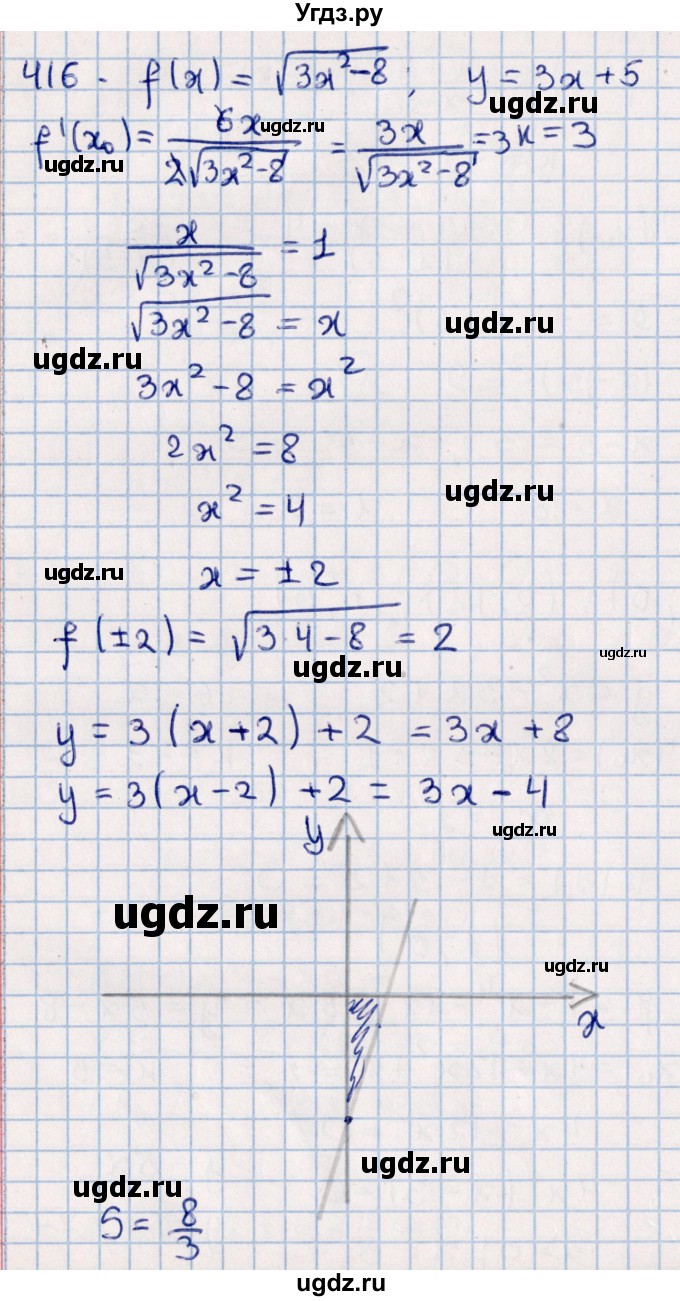 Угдз.ру
416. f(x) = √(3x²-8); y = 3x+5
ugdz.ru
f'(x₀) = 6x / 2√(3x²-8) = 3x / √(3x²-8) = 3 k = 3
ugdz.ru
ugdz.ru
x / √(3x²-8) = 1
√(3x²-8) = x
ugdz.ru
ugdz.ru
3x²-8 = x²
2x² = 8
ugdz.ru
x² = 4
ugdz.ru
x = ±2
f(±2) = √(3·4-8) = 2
ugdz.ru
ugdz.ru
y = 3(x+2)+2 = 3x+8
y = 3(x-2)+2 = 3x-4
ugdz.ru
y
ugdz.ru
ugdz.ru
x
ugdz.ru
ugdz.ru
S = 8/3
ugdz.ru